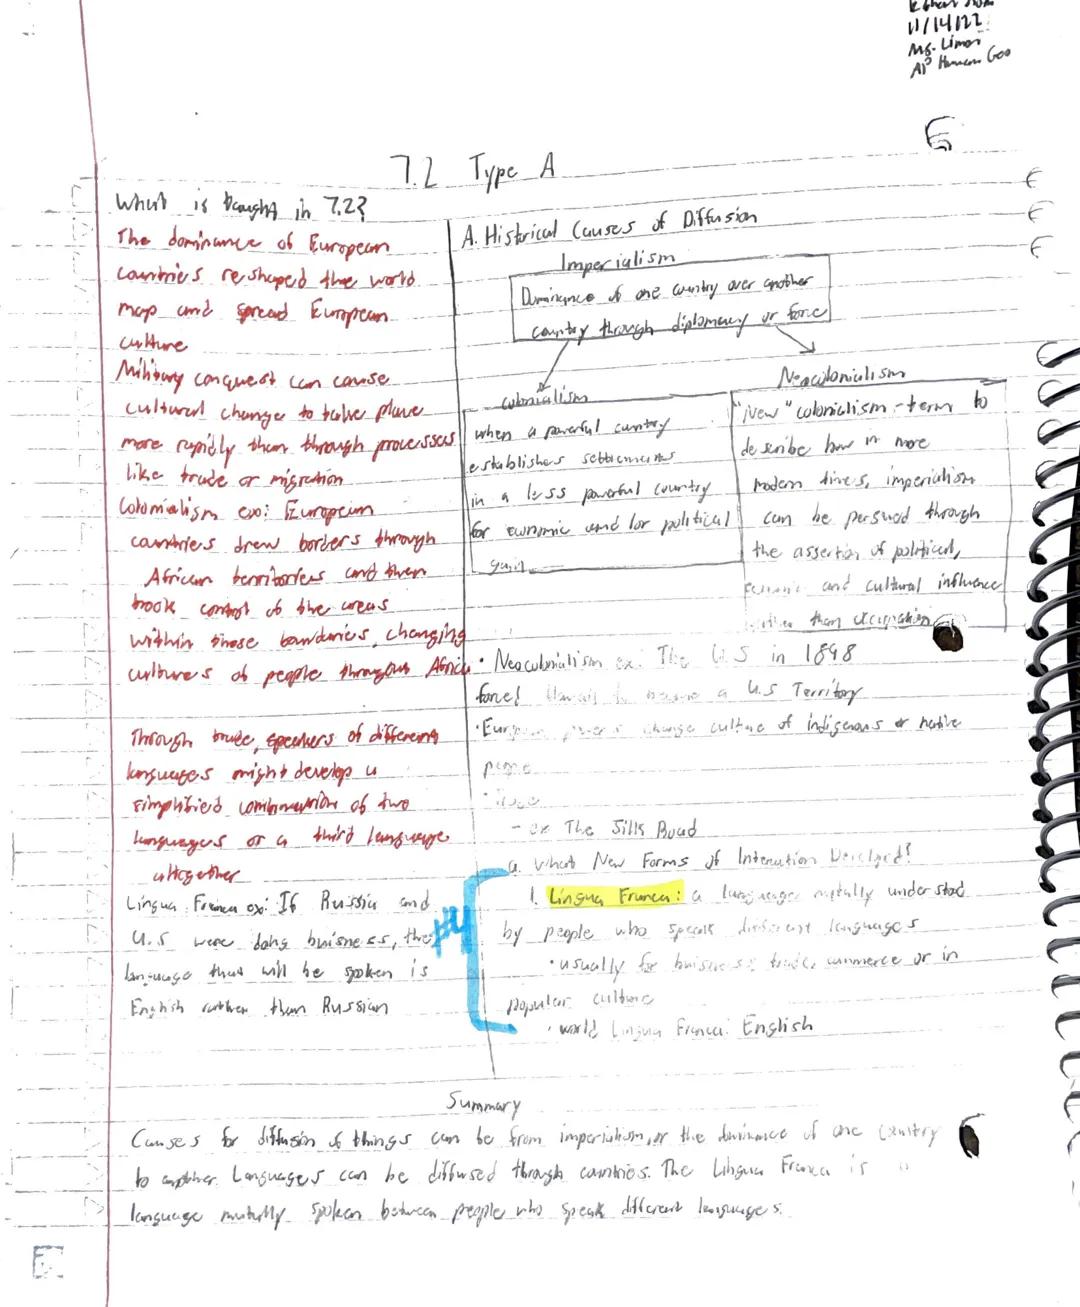 11/14/22
Ms. Limon
AP Human Geo
7.2 Type A
What is taught in 7.2?
The dominance of European
countries reshaped the world
map and spread European
culture
Military conquest can cause
cultural change to take place
more rapidly than through processes
like trade or migration
Colonialism ex: European
countries drew borders through
African territories and then
took control of the areas
within those boundaries, changing
cultures of people througout Africa
Through trade, speakers of differing
languages might develop a
simplified combination of two
languages or a third language
altogether
Lingua Franca ex: If Russia and
U.S were doing buisness, the
language that will be spoken is
English rather than Russian
A. Historical Causes of Diffusion
Imperialism
Dominance of one country over another
country through diplomacy or force
colonialism
when a powerful country
establishers settlements
in a less powerful country
for economic and/or political
gain
Neocolonialism
"New" colonialism - term to
describe how in more
modern times, imperialism
can be persued through
the assertion of political,
economic and cultural influence
rather than occupation
• Neocolonialism ex: The U.S in 1898
forced Hawaii to become a U.S Territory
• European powers change culture of indigenous or native
people
• Trade
- ex The Silk Road
a. What New Forms of Interaction Developed?
1. Lingua Franca: a language mutally understood
by people who speak different languages
• usually for buisness, trade, commerce or in
popular culture
• world Lingua Franca: English
#4
Summary
Causes for diffusion of things can be from imperialism, or the dominance of one country
to another. Languages can be diffused through countries. The Lingua Franca is
language mutully spoken between people who speak different languages.